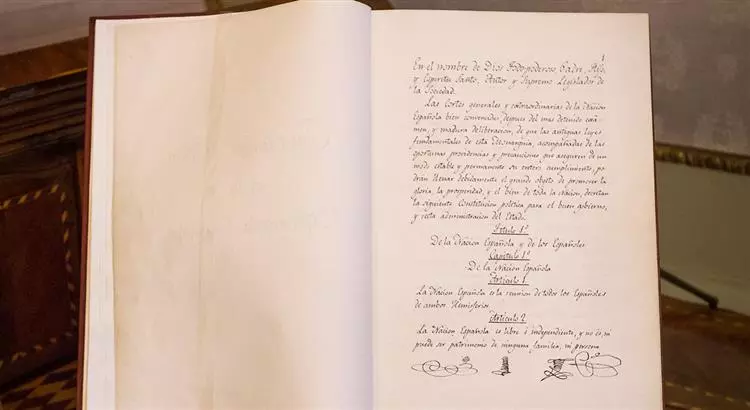 1
En el nombre de Dios Todopoderoso, Padre, Hijo,
y Espiritu Santo, Autor y Supremo Legislador de
la Sociedad.
Las Cortes generales y extraordinarias de la Nacion
Española bien convencidas, despues del mas detenido exâ-
men, y madura deliberacion, de que las antiguas leyes
fundamentales de esta Monarquia, acompañadas de las
oportunas providencias y precauciones que aseguren de un
modo estable y permanente su entero cumplimiento, po-
drán llenar debidamente el grande objeto de promover la
gloria, la prosperidad, y el bien de toda la Nacion, decretan
la siguiente Constitucion politica para el buen gobierno,
y recta administracion del Estado.
Titulo 1º
De la Nacion Española y de los Españoles.
Capitulo 1º
De la Nacion Española
Articulo 1
La Nacion Española es la reunion de todos los Españoles
de ambos Hemisferios.
Articulo 2
La Nacion Española es libre é independiente, y no es, ni
puede ser patrimonio de ninguna familia, ni persona